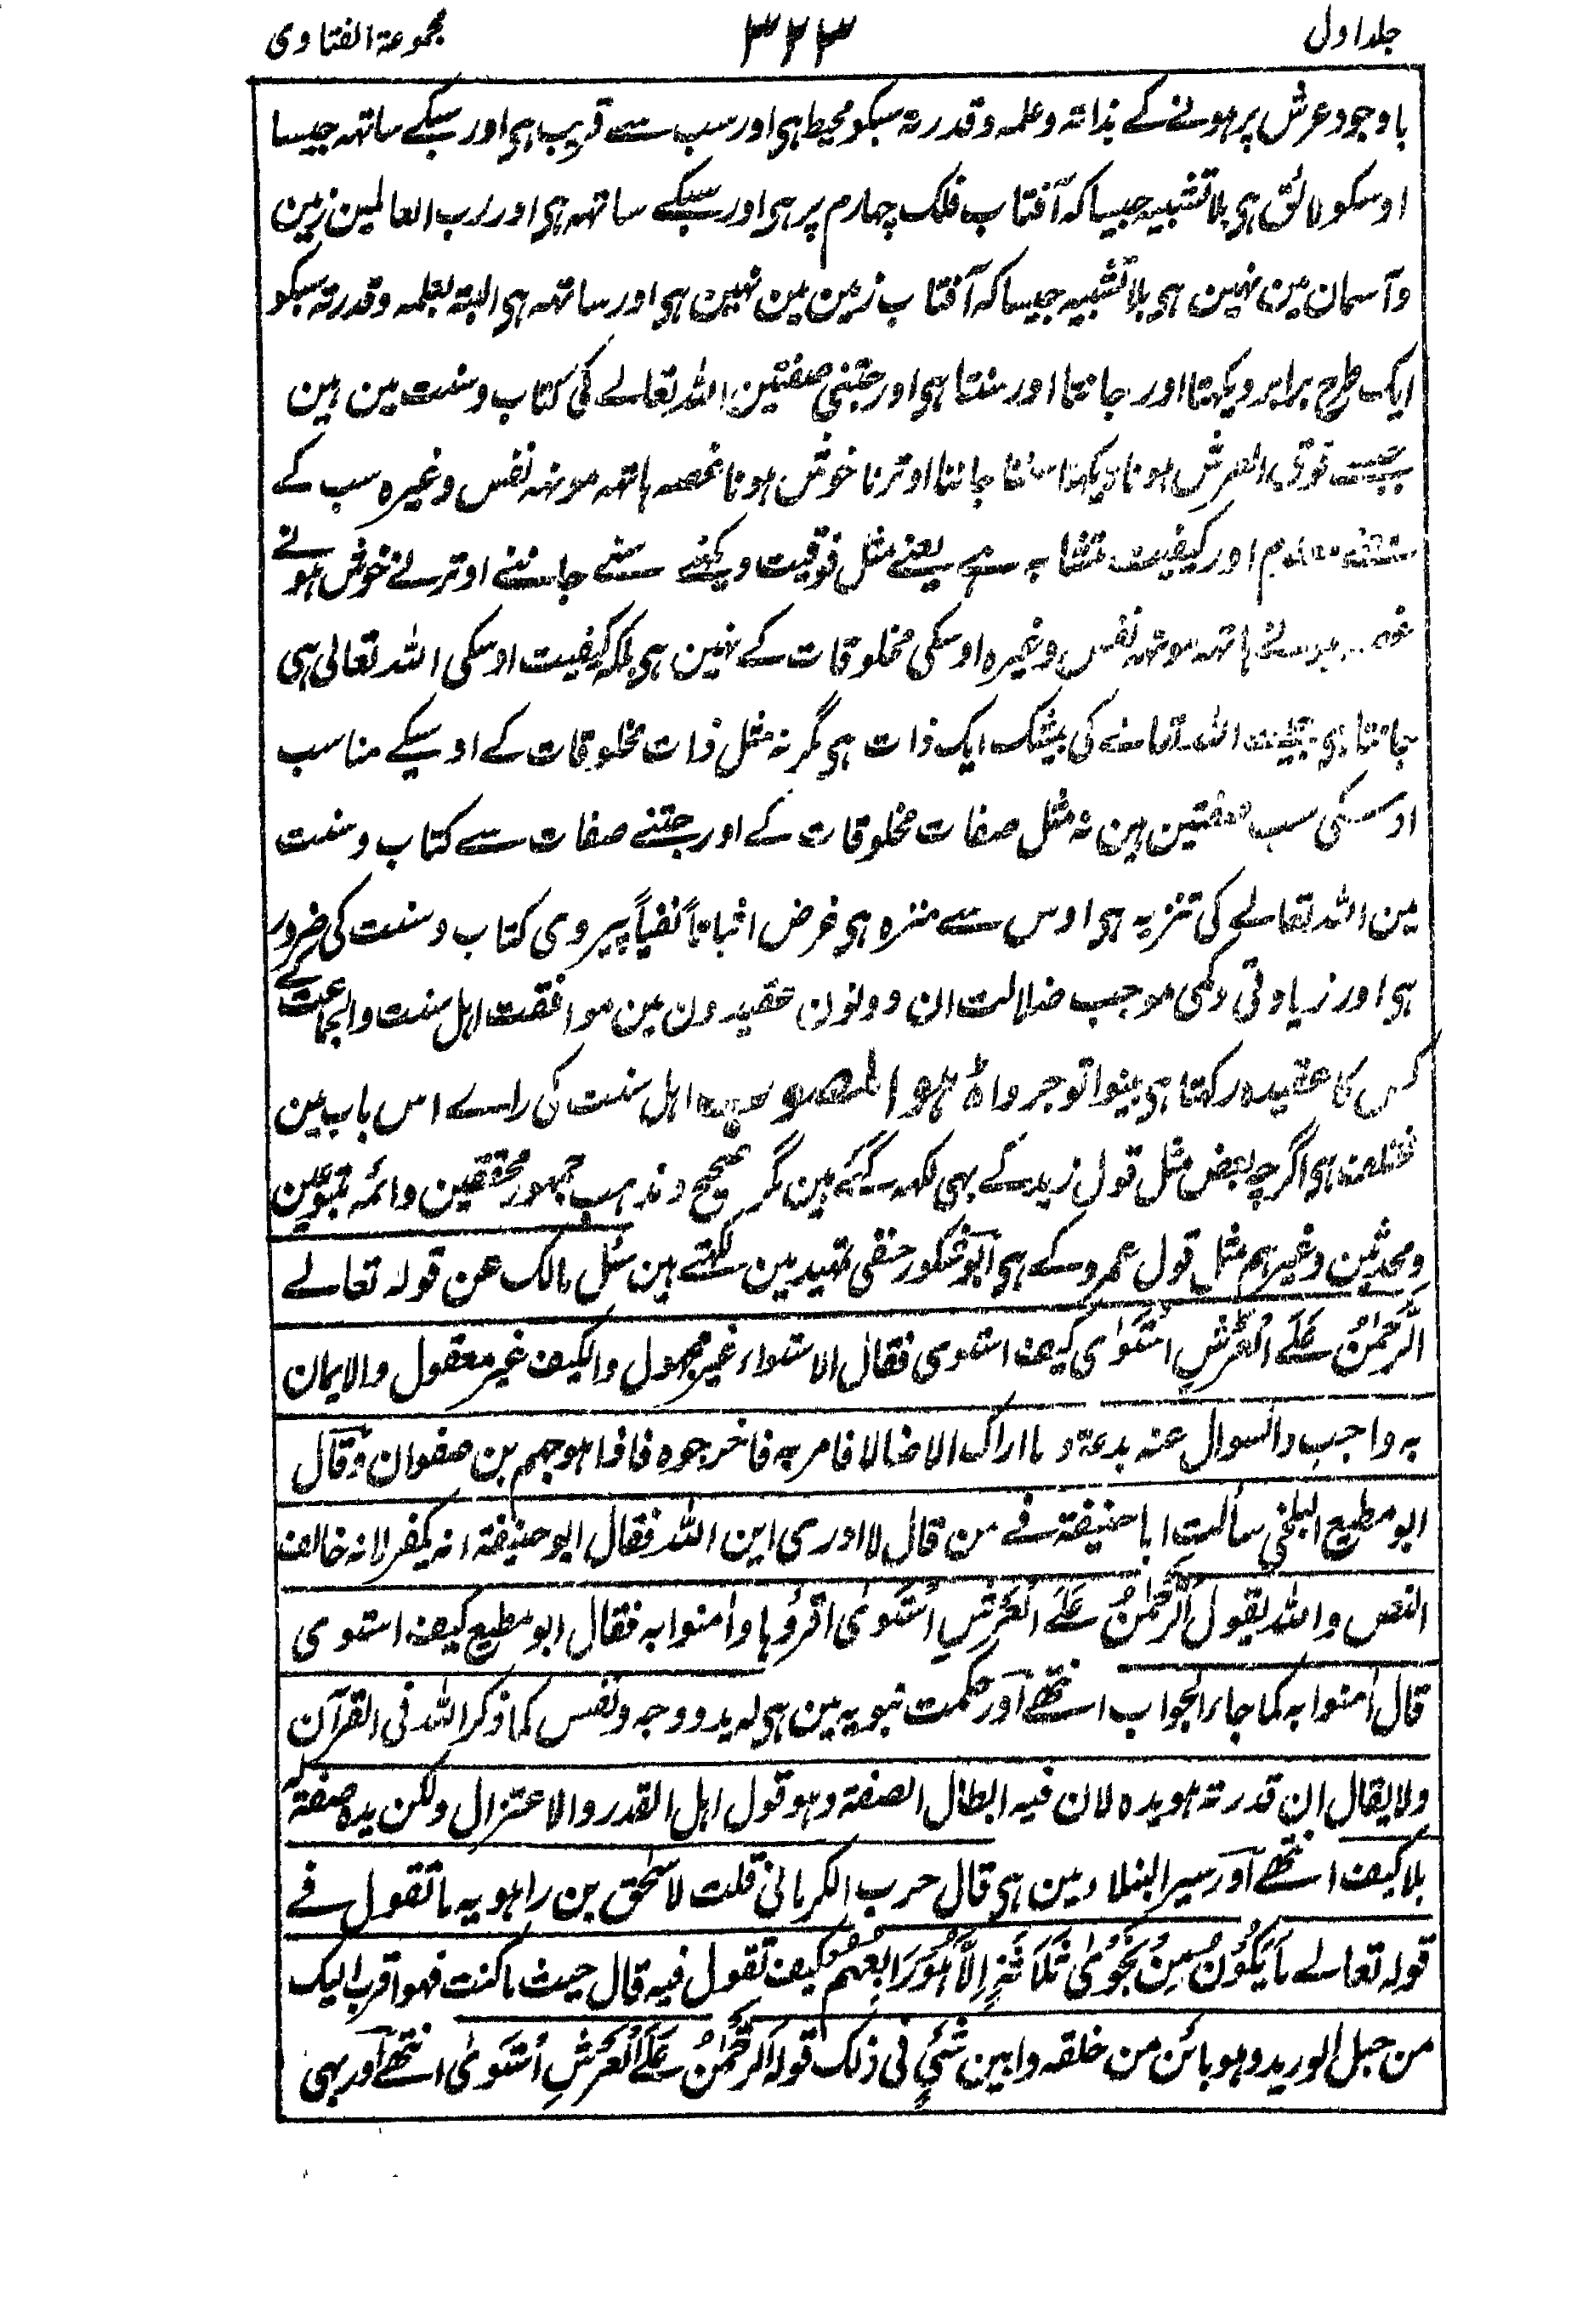 جلد اول ۳۲۳ مجموعۃ الفتاوی
باوجود عرش پر ہونے کے بذاتہ وعلمہ وقدرتہ سبکو محیط ہی اور سب سے قریب ہی اور سبکے ساتھہ جیسا
اوسکو لائق ہی بلا تشبیہ جیسا کہ آفتاب فلک چہارم پر ہی اور سبکے ساتھہ ہی اور رب العالمین زمین
وآسمان مین نہین ہی بلا تشبیہ جیسا کہ آفتاب زمین مین نہین ہی اور ساتھہ ہی البتہ بعلمہ وقدرتہ سبکو
ایک طرح برابر دیکہتا اور جانتا اور سنتا ہی اور جتنی صفتین اللہ تعالے کی کتاب وسنت مین ہین
جیسے فوق العرش ہونا دیکہنا سننا جاننا اوترنا خوش ہونا غصہ ہاتھہ مونہہ نفس وغیرہ سب کے
معلوم اور کیفیت متشابہ ہے یعنے مثل فوقیت دیکہنے سننے جاننے اوترنے خوش ہونے
غصہ ہونے ہاتھہ مونہہ نفس وغیرہ اوسکی مخلوقات کے نہین ہی بلکہ کیفیت اوسکی اللہ تعالی ہی
جانتا ہی جیسے اللہ تعالے کی بیشک ایک ذات ہی مگر نہ مثل ذات مخلوقات کے اوسیکے مناسب
اوسکی سب صفتین ہین نہ مثل صفات مخلوقات کے اور جتنے صفات سے کتاب وسنت
مین اللہ تعالے کی تنزیہ ہی اوس سے منزہ ہی غرض اثباتاً نفیاً پیروی کتاب وسنت کی ضرور
ہی اور زیادتی وکمی موجب ضلالت ان دونون عقیدون مین موافقت اہل سنت والجماعت کے
کس کا عقیدہ رکہتا ہی بینوا توجروا ہو المصوب اہل سنت کی راے اس باب مین
مختلف ہی اگرچہ بعض مثل قول زید کے بہی لکہہ گئے ہین مگر صحیح ومذہب جمہور محققین وائمہ متبوعین
ومحدثین وغیرہم مثل قول عمرو کے ہی ابو شکور حنفی تمہید مین لکہتے ہین سئل مالک عن قولہ تعالے
اَلرَّحْمٰنُ عَلَے الْعَرْشِ اسْتَوٰی کیف استوی فقال الاستواء غیر مجہول والکیف غیر معقول والایمان
بہ واجب والسوال عنہ بدعۃ وما اراک الا ضالا فامر بہ فاخرجوہ فاذا ہو جہم بن صفوان وقال
ابو مطیع البلخی سألت ابا حنیفۃ فے من قال لا ادری این اللہ فقال ابو حنیفۃ انہ یکفر لانہ خالف
النص واللہ یقول اَلرَّحْمٰنُ عَلَے الْعَرْشِ اسْتَوٰی اقرؤہا وامنوا بہ فقال ابو مطیع کیف استوی
قال اٰمنوا بہ کما جاء الجواب انتہے اور حکمت نبویہ مین ہی لہ ید ووجہ ونفس کما ذکر اللہ فی القرآن
ولا یقال ان قدرتہ ہو یدہ لان فیہ ابطال الصفۃ وہو قول اہل القدر والاعتزال ولکن یدہ صفتہ لہ
بلا کیف انتہے اور سیر النبلاء مین ہی قال حرب الکرمانی قلت لاسحق بن راہویہ ما تقول فے
قولہ تعالے مَا یَکُوْنُ مِنْ نَجْوٰی ثَلَاثَۃٍ اِلَّا ہُوَ رَابِعُہُمْ کیف تقول فیہ قال حیث ما کنت فہو اقرب الیک
من حبل الورید وہو بائن من خلقہ وابین شئیٍ فی ذلک قولہ الرَّحْمٰنُ عَلَے الْعَرْشِ اسْتَوٰی انتہے اور بہی